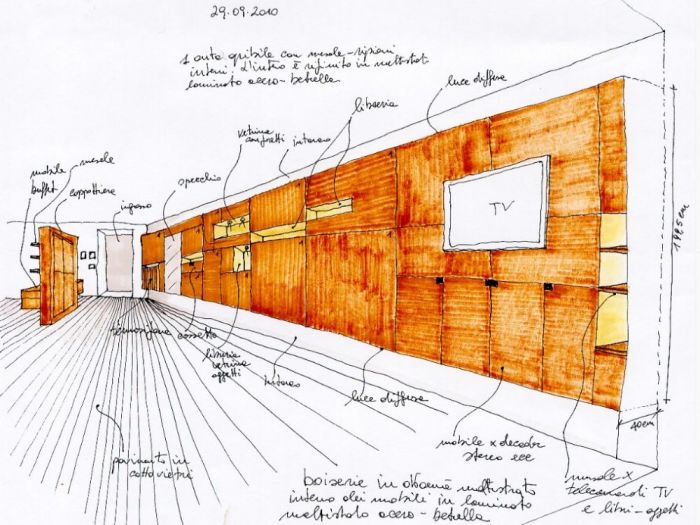 29.09.2010
1 anta apribile con mensole-ripiani
interni, l'interno è rifinito in multistrat
laminato acero-betulla
luce diffusa
libreria
vetrina
con oggetti
interno
mensole
mobile
buffet
cappottiera
ingresso
specchio
TV
cassetto
libreria
vetrina
oggetti
luce diffusa
40cm
mobile x decoder
stereo ecc
mensole x
telecomandi TV
e libri-oggetti
pavimento in
cotto vietri
boiserie in multistrato
interno dei mobili in laminato
multistrato acero-betulla